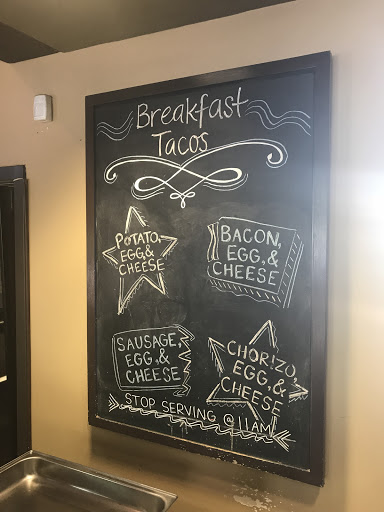 Breakfast
Tacos
POTATO,
EGG, &
CHEESE
BACON,
EGG, &
CHEESE
SAUSAGE,
EGG, &
CHEESE
CHORIZO,
EGG, &
CHEESE
STOP SERVING @ 11AM